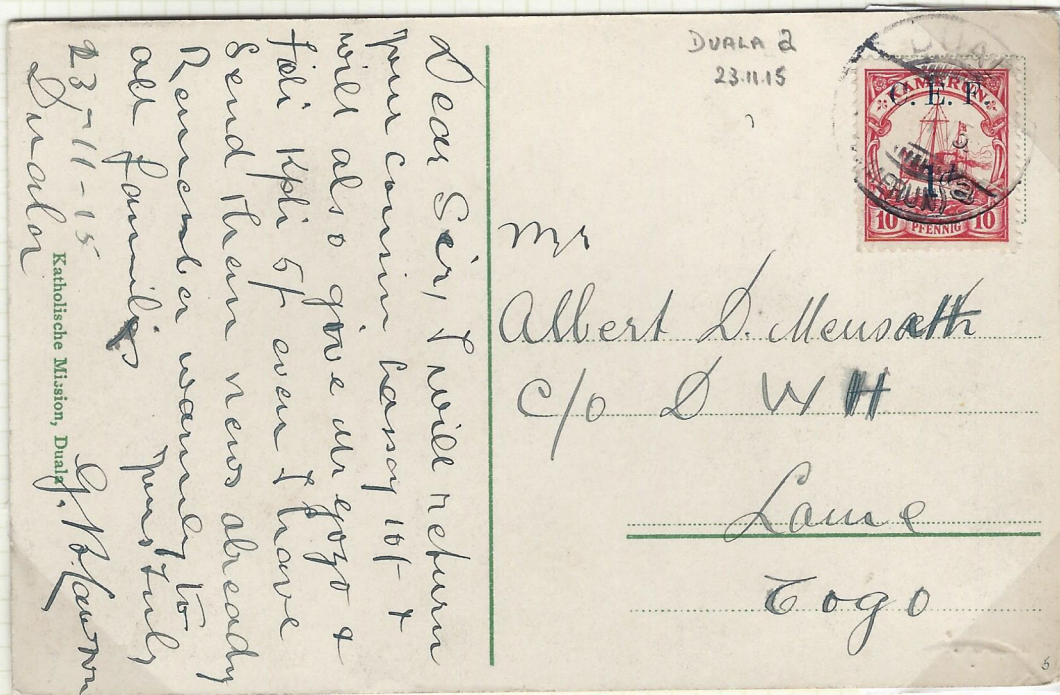 DUALA 2
23.11.15
DUALA
KAMERUN
C. E. F.
1
10 PFENNIG 10
Mr
Albert D. Mensah
c/o D W H
Lome
Togo
Dear Sir, I will return
your cousin hassoy 10/- +
will also give Mr egozo +
Foli Kpli 5/- even I have
Send them news already
Remember warmly to
all families
yours truly
23-11-15
Duala
Katholische Mission, Duala